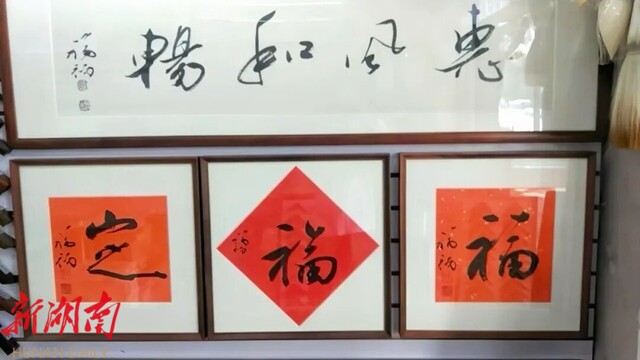 惠风和暢
定
福
福
新湖南